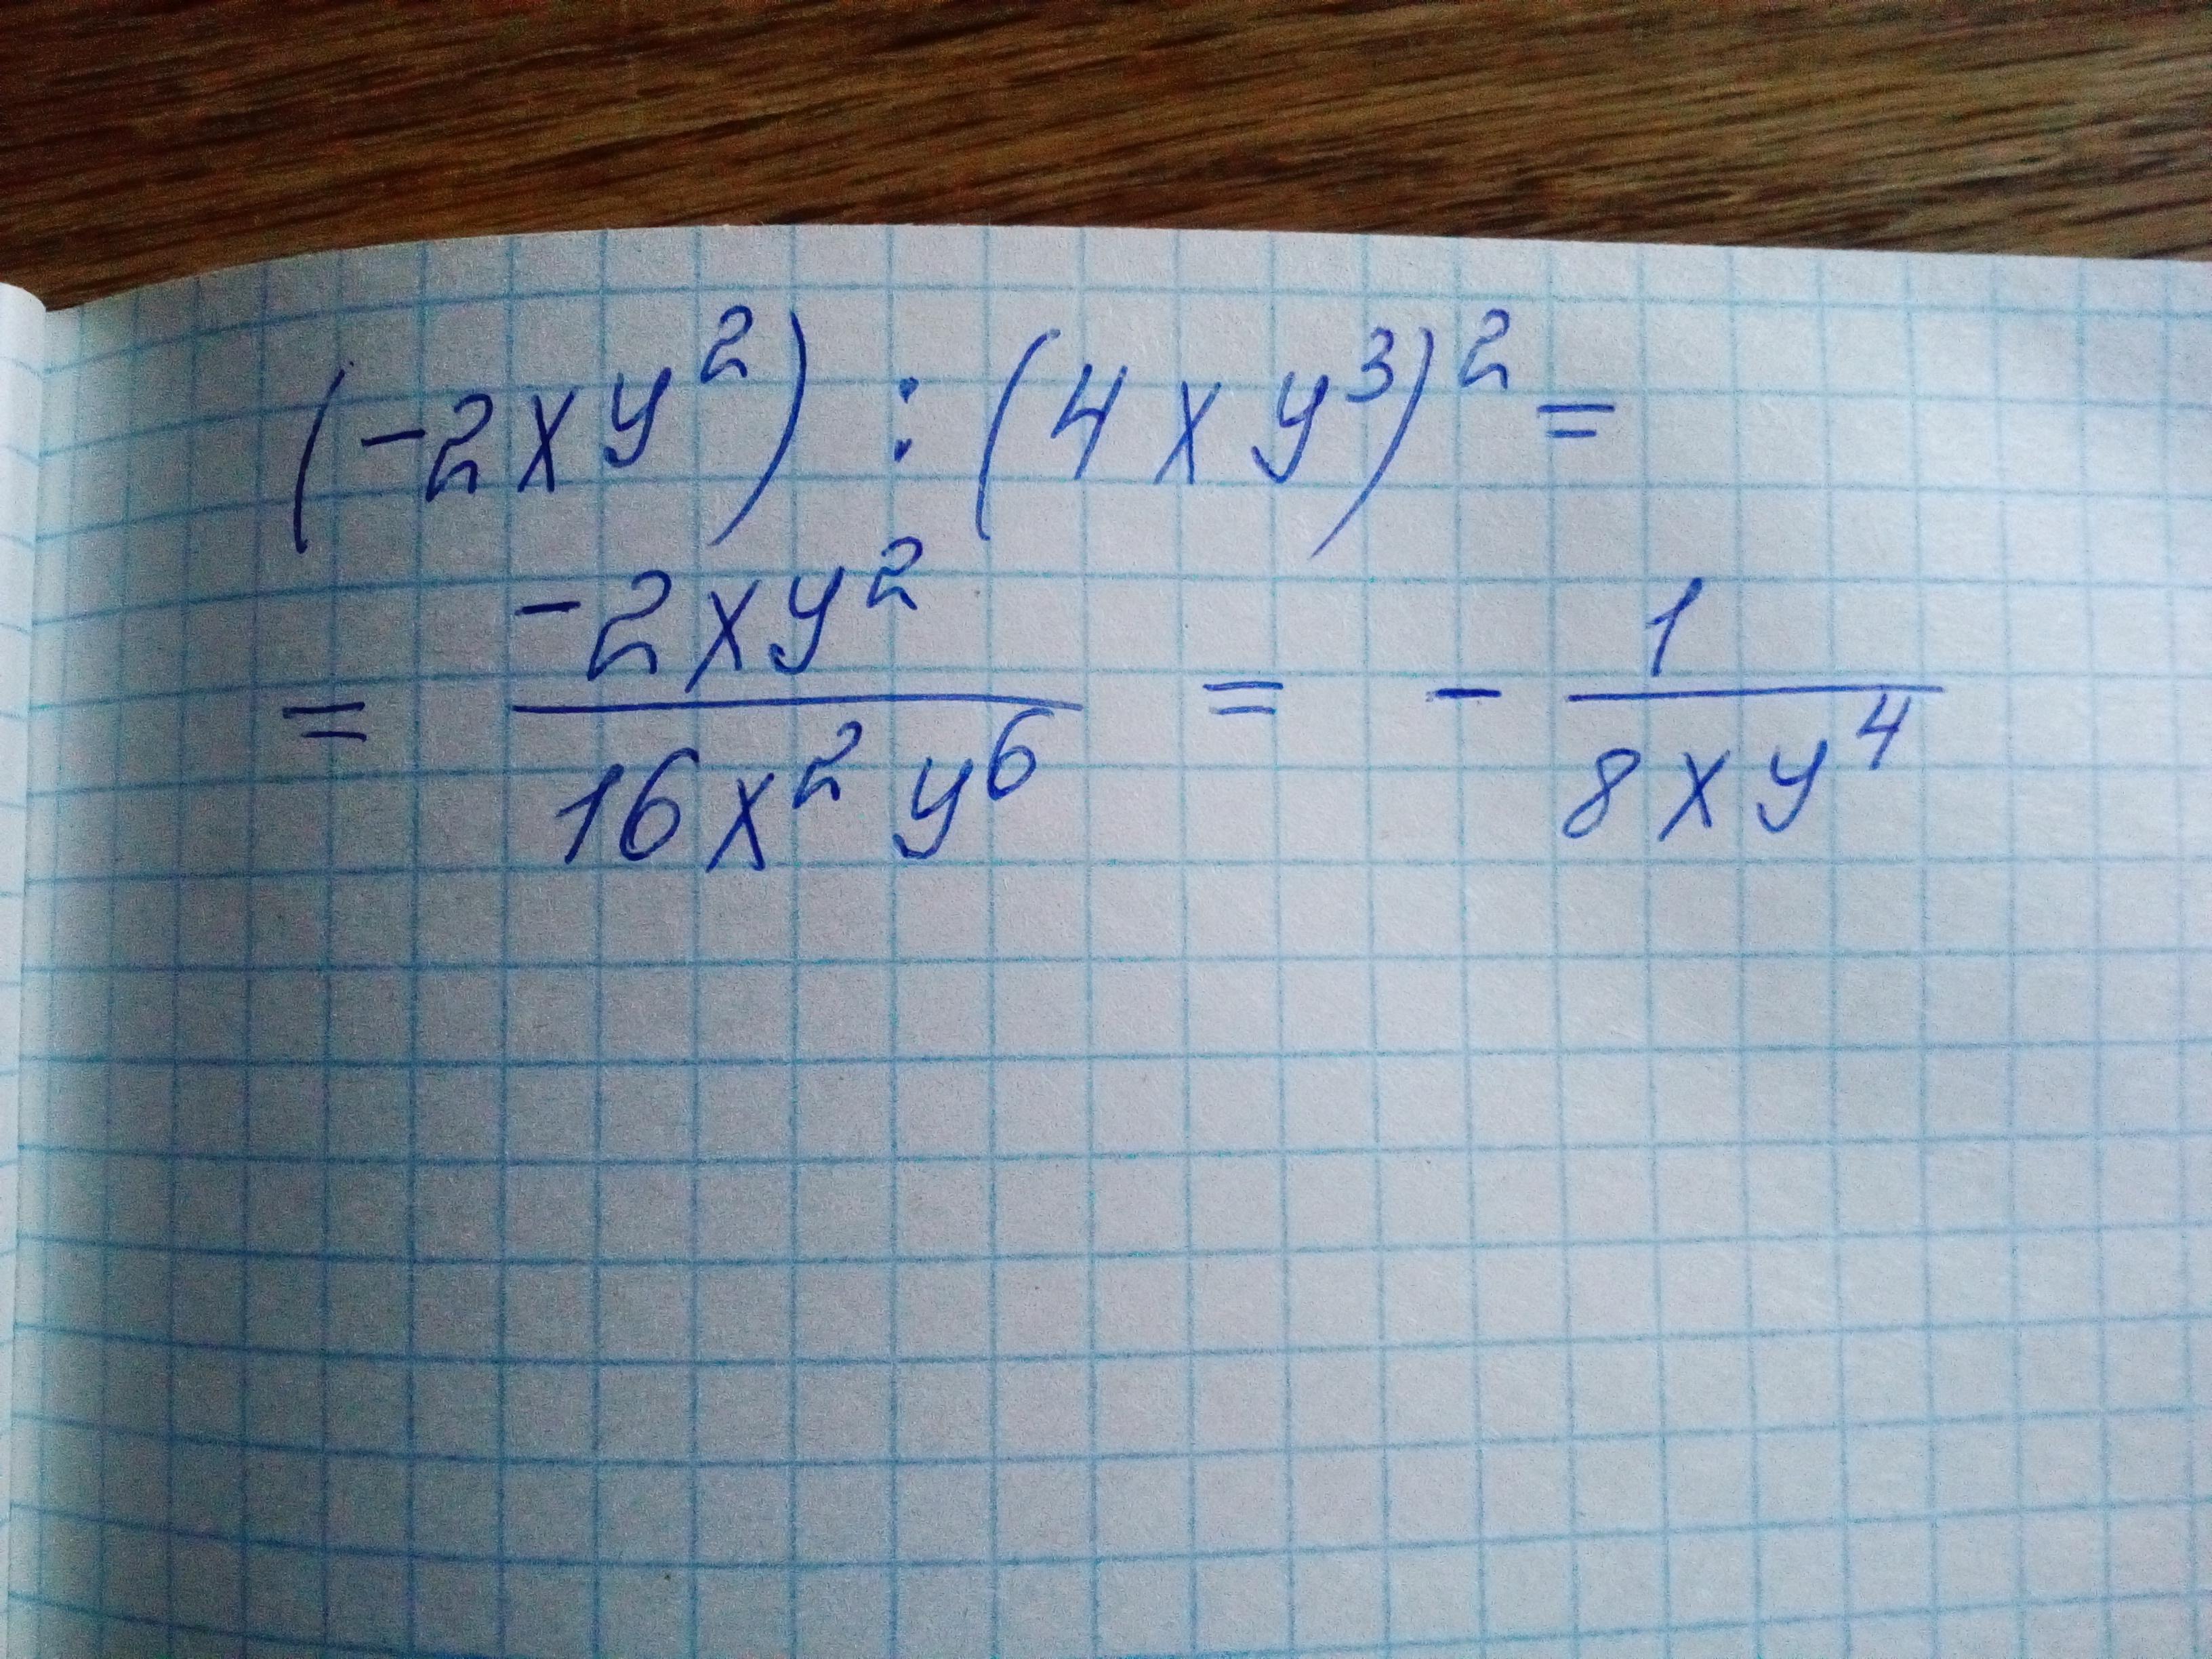 (-2xy²) : (4xy³)² =
= -2xy² / 16x²y⁶ = - 1 / 8xy⁴